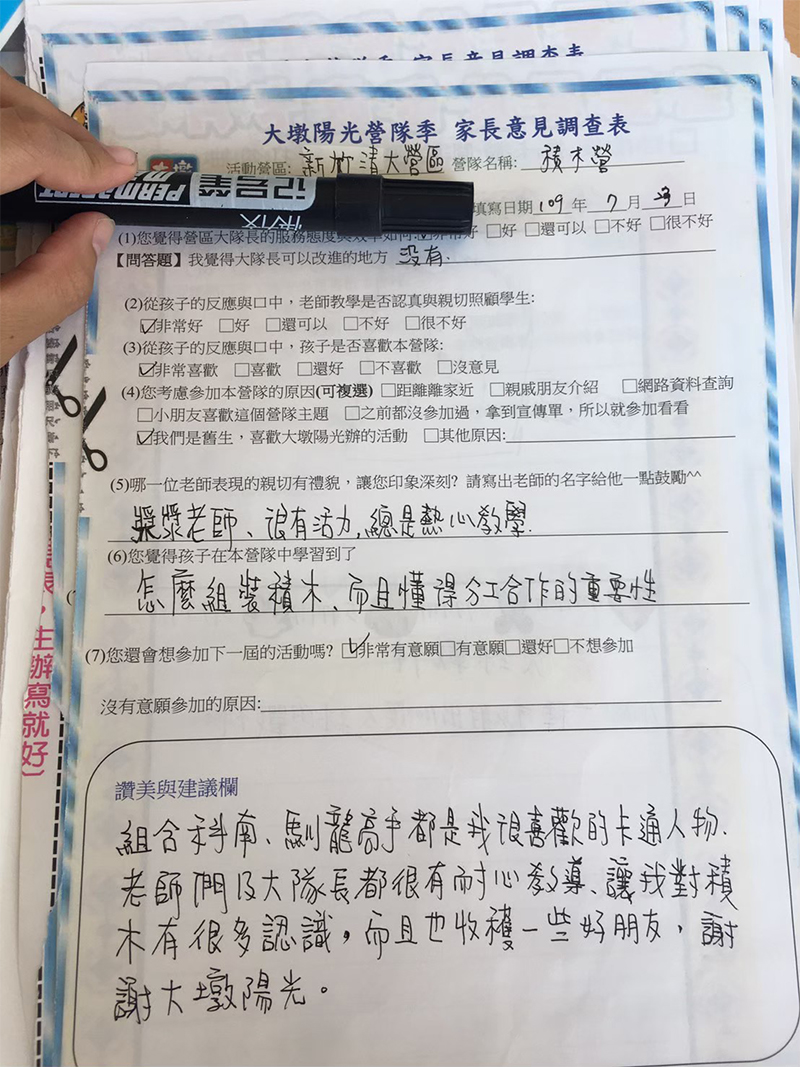 大墩陽光營隊季 家長意見調查表
活動營區: 新竹清大營區 營隊名稱: 積木營
填寫日期 109 年 7 月 23 日
(1)您覺得營區大隊長的服務態度與效率如何:☑非常好 □好 □還可以 □不好 □很不好
【問答題】我覺得大隊長可以改進的地方 沒有.
(2)從孩子的反應與口中，老師教學是否認真與親切照顧學生:
☑非常好 □好 □還可以 □不好 □很不好
(3)從孩子的反應與口中，孩子是否喜歡本營隊:
☑非常喜歡 □喜歡 □還好 □不喜歡 □沒意見
(4)您考慮參加本營隊的原因(可複選) □距離離家近 □親戚朋友介紹 □網路資料查詢
□小朋友喜歡這個營隊主題 □之前都沒參加過，拿到宣傳單，所以就參加看看
☑我們是舊生，喜歡大墩陽光辦的活動 □其他原因:
(5)哪一位老師表現的親切有禮貌，讓您印象深刻? 請寫出老師的名字給他一點鼓勵^^
漿漿老師、很有活力,總是熱心教學.
(6)您覺得孩子在本營隊中學習到了
怎麼組裝積木、而且懂得分工合作的重要性
(7)您還會想參加下一屆的活動嗎? ☑非常有意願□有意願□還好□不想參加
沒有意願參加的原因:
讚美與建議欄
組合科南、馴龍高手都是我很喜歡的卡通人物、
老師們及大隊長都很有耐心教導、讓我對積
木有很多認識，而且也收穫一些好朋友，謝
謝大墩陽光。
PERMANENT
记号笔
生辦寫就好)
家長意見調查表